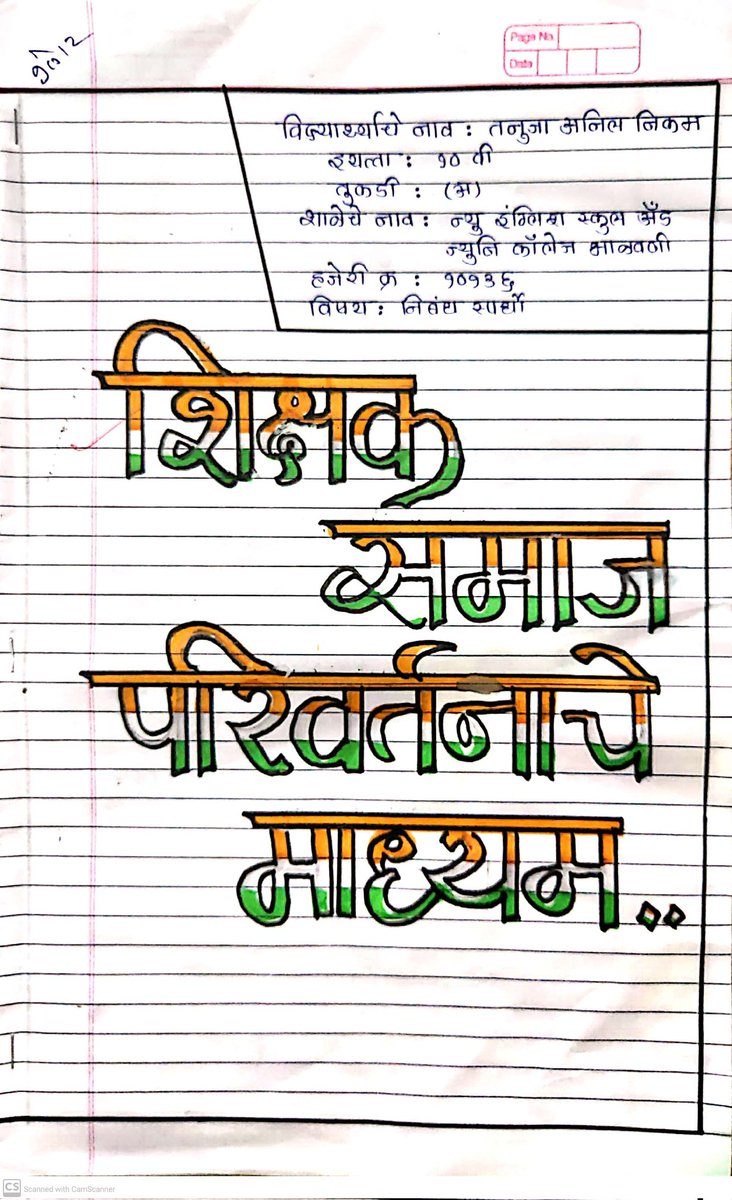 Page No
Date
विद्यार्थ्याचे नाव : तनुजा अनिल निकम
इयत्ता : १० वी
तुकडी : (अ)
शाळेचे नाव : न्यू इंग्लिश स्कुल अँड
ज्युनि कॉलेज माळवणी
हजेरी क्र : १०१३६
विषय : निबंध स्पर्धा
शिक्षक
समाज
परिवर्तनाचे
माध्यम..
CS Scanned with CamScanner